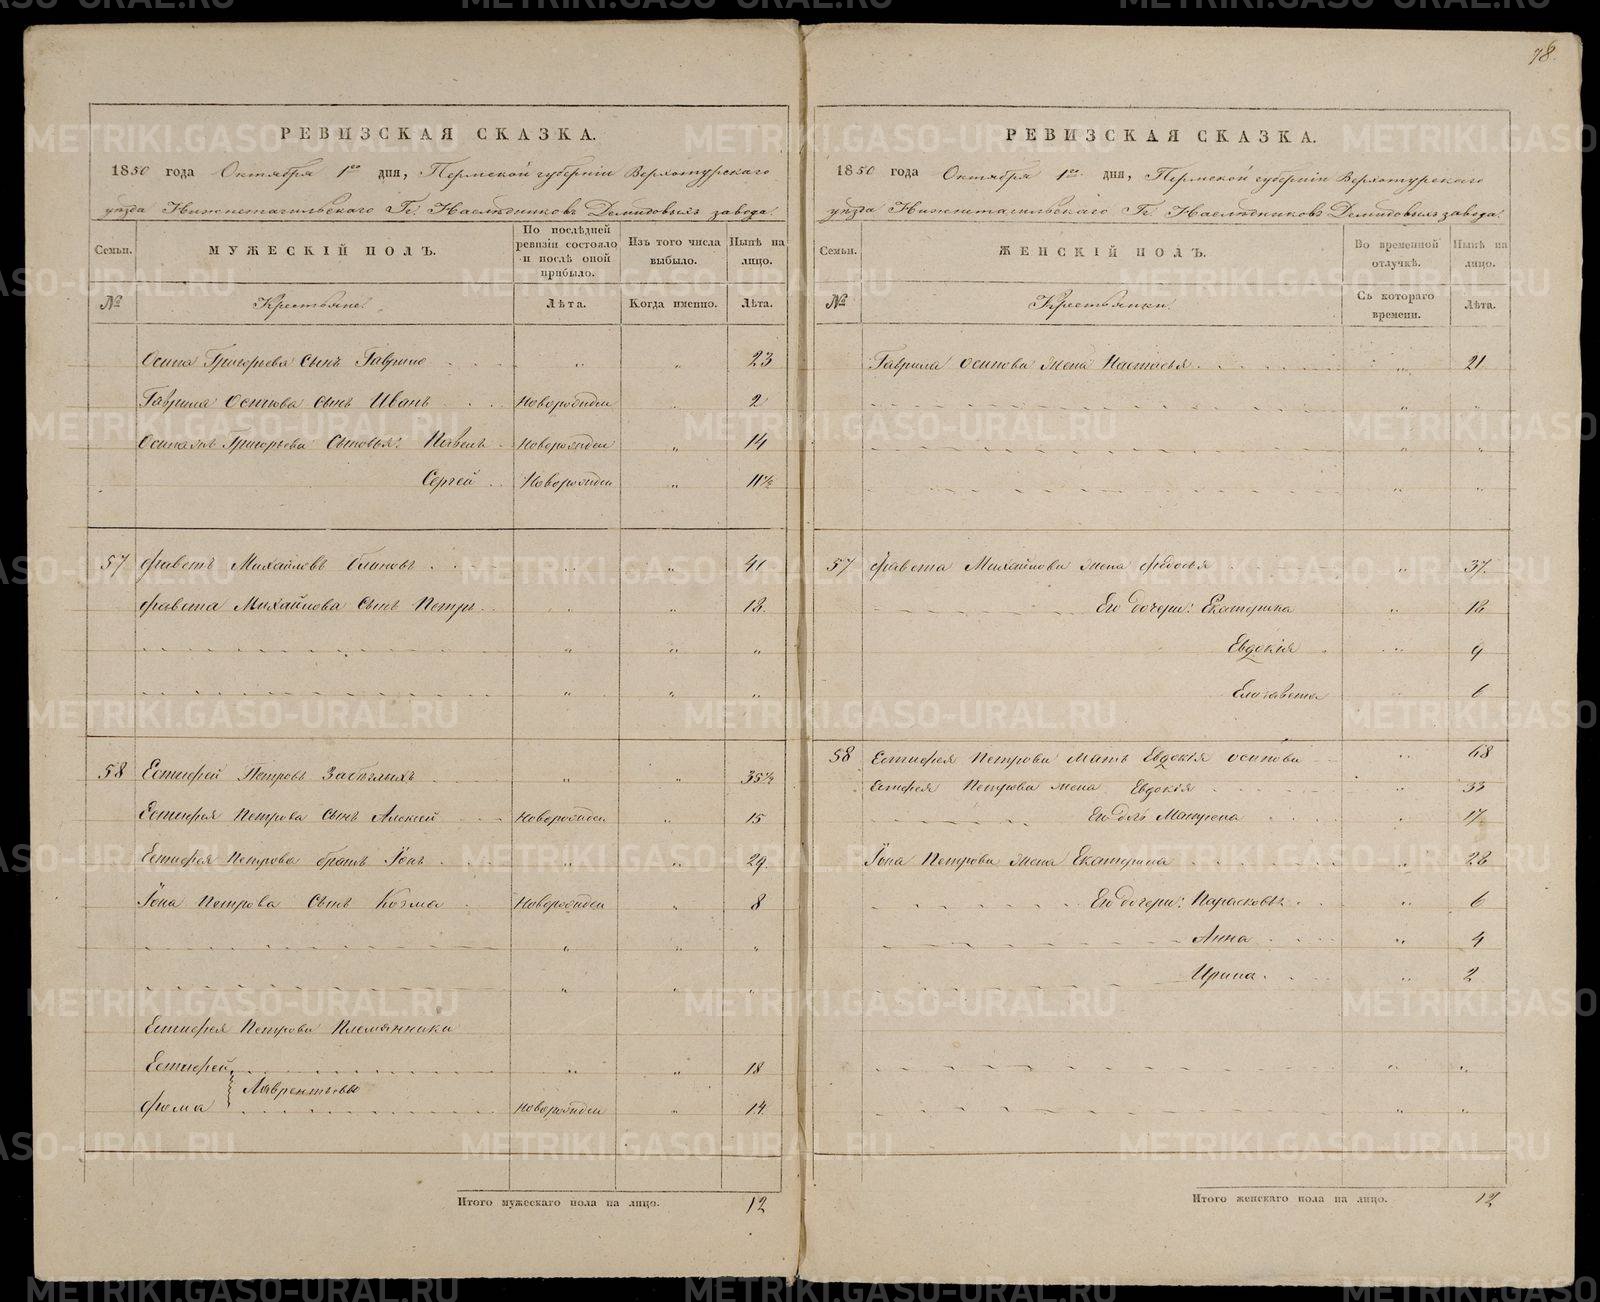 78.
РЕВИЗСКАЯ СКАЗКА.
1850 года Октября 1го дня, Пермской губернiи Верхотурскаго
уѣзда Нижнетагильскаго Гг. Наслѣдниковъ Демидовыхъ завода.
Семьи. МУЖЕСКІЙ ПОЛЪ. По послѣдней ревизіи состояло и послѣ оной прибыло. Изъ того числа выбыло. Нынѣ на лицо.
№ Крестьяне. Лѣта. Когда именно. Лѣта.
Осипа Григорьева сынъ Гаврило 23
Гаврила Осипова сынъ Иванъ Новорожден 2
Григорьева сыновья: Павелъ Новорожден 14
Сергей Новорожден 11½
57 Михайловъ 41
Михайлова сынъ Петръ 13
58 Естифей Петровъ 35½
Естифея Петрова сынъ Алексей Новорожден 15
Естифея Петрова братъ Іона 29
Іона Петрова сынъ Козма Новорожден 8
Естифея Петрова Племянники
Естифей 18
Лаврентьевы
Фома Новорожден 14
Итого мужескаго пола на лицо. 12
РЕВИЗСКАЯ СКАЗКА.
1850 года Октября 1го дня, Пермской губернiи Верхотурскаго
уѣзда Нижнетагильскаго Гг. Наслѣдниковъ Демидовыхъ завода.
Семьи. ЖЕНСКІЙ ПОЛЪ. Во временной отлучкѣ. Нынѣ на лицо.
№ Крестьянки. Съ котораго времени. Лѣта.
Гаврила Осипова жена Настасья 21
57 Михайлова жена Федосья 37
Его дочери: Екатерина 13
Евдокія 9
Елизавета 6
58 Естифея Петрова мать Евдокія Осипова 68
Естифея Петрова жена Евдокія 33
Его дочь Матрена 17
Іона Петрова жена Екатерина 28
Его дочери: Парасковья 6
Анна 4
Ирина 2
Итого женскаго пола на лицо. 12
METRIKI.GASO-URAL.RU